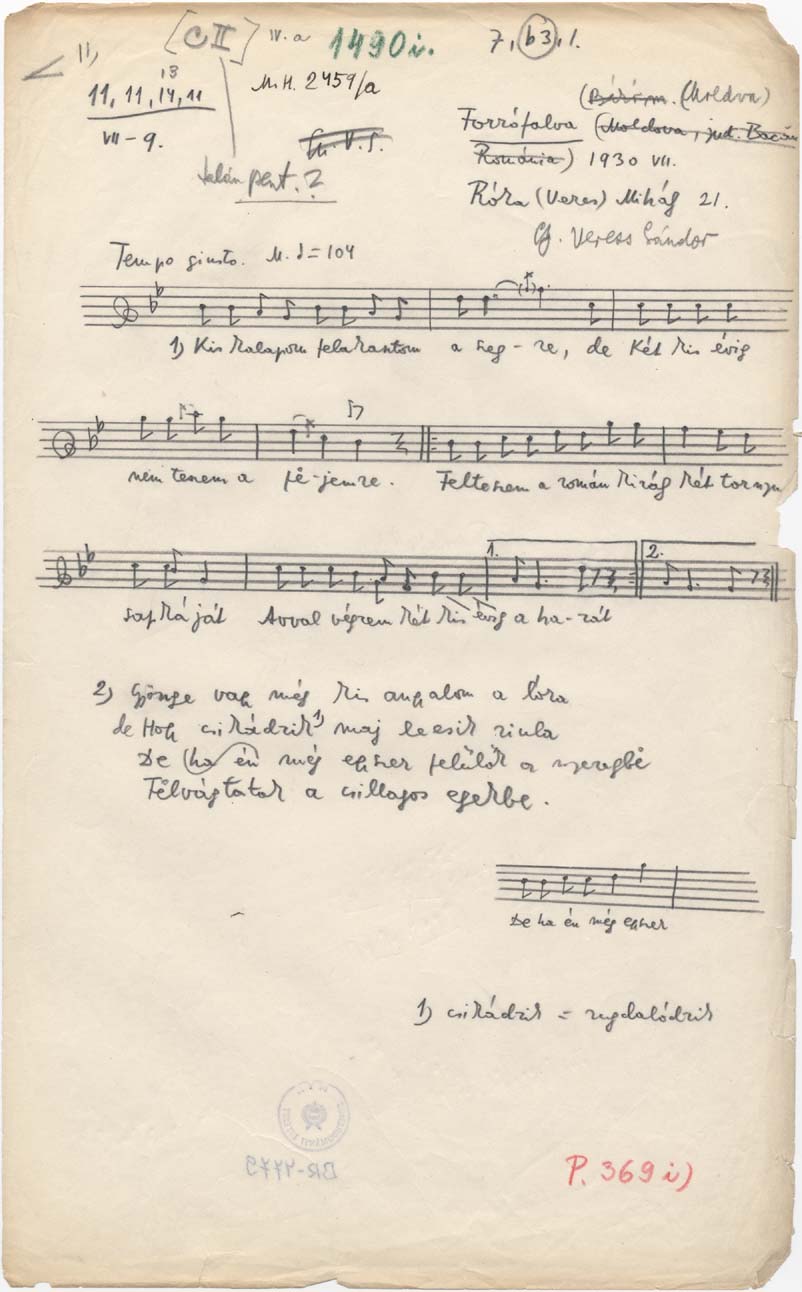 11, [C II] IV.a 1490i. 7, b3, 1.
13
11, 11, 14, 11 M.H. 2459/a
VII – 9.
(Moldva)
Forrófalva (Moldova, jud. Bacău
România) 1930 VII.
talán pent. ?
Róra (Veres) Mihály 21.
Gy. Veress Sándor
Tempo giusto. M. = 104
1) Kis kalapom felakasztom a szeg-re, de két kis évig
nem teszem a fé-jemre. Felteszem a román király két tornyu
1. 2.
sapkáját Avval végzem két kis évig a ha-zát
2) Gyönge vagy még kis angyalom a lóra
de Hogy csikádzik 1) maj leesik riula
De ha én még egyszer felülök a nyeregbe
Félvágtatok a csillagos egekbe.
De ha én még egyszer
1) csikádzik = rugdalódzik
BR-4479
P. 369 i)